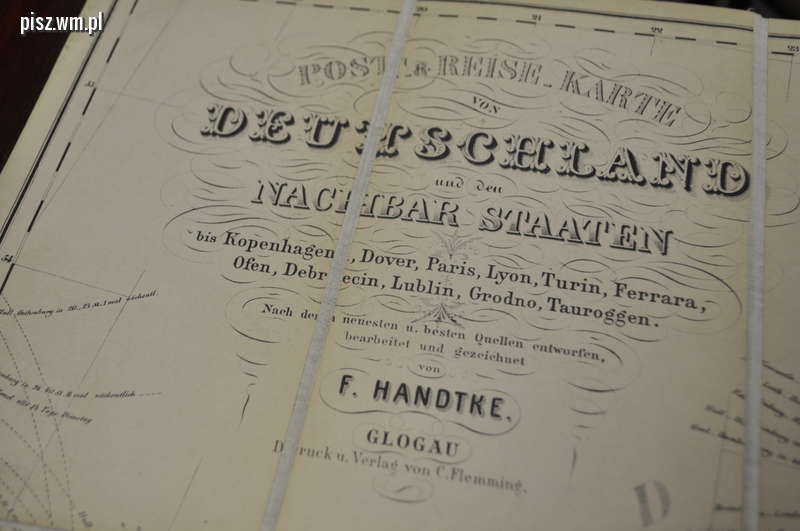 pisz.wm.pl
20
21
22
23
53
POST & REISE-KARTE
VON
DEUTSCHLAND
und den
NACHBAR STAATEN
bis Kopenhagen, Dover, Paris, Lyon, Turin, Ferrara,
Ofen, Debreecin, Lublin, Grodno, Tauroggen.
54
Nach den neuesten u. besten Quellen entworfen,
bearbeitet und gezeichnet
von
F. HANDTKE.
GLOGAU
Druck u. Verlag von C. Flemming.
D